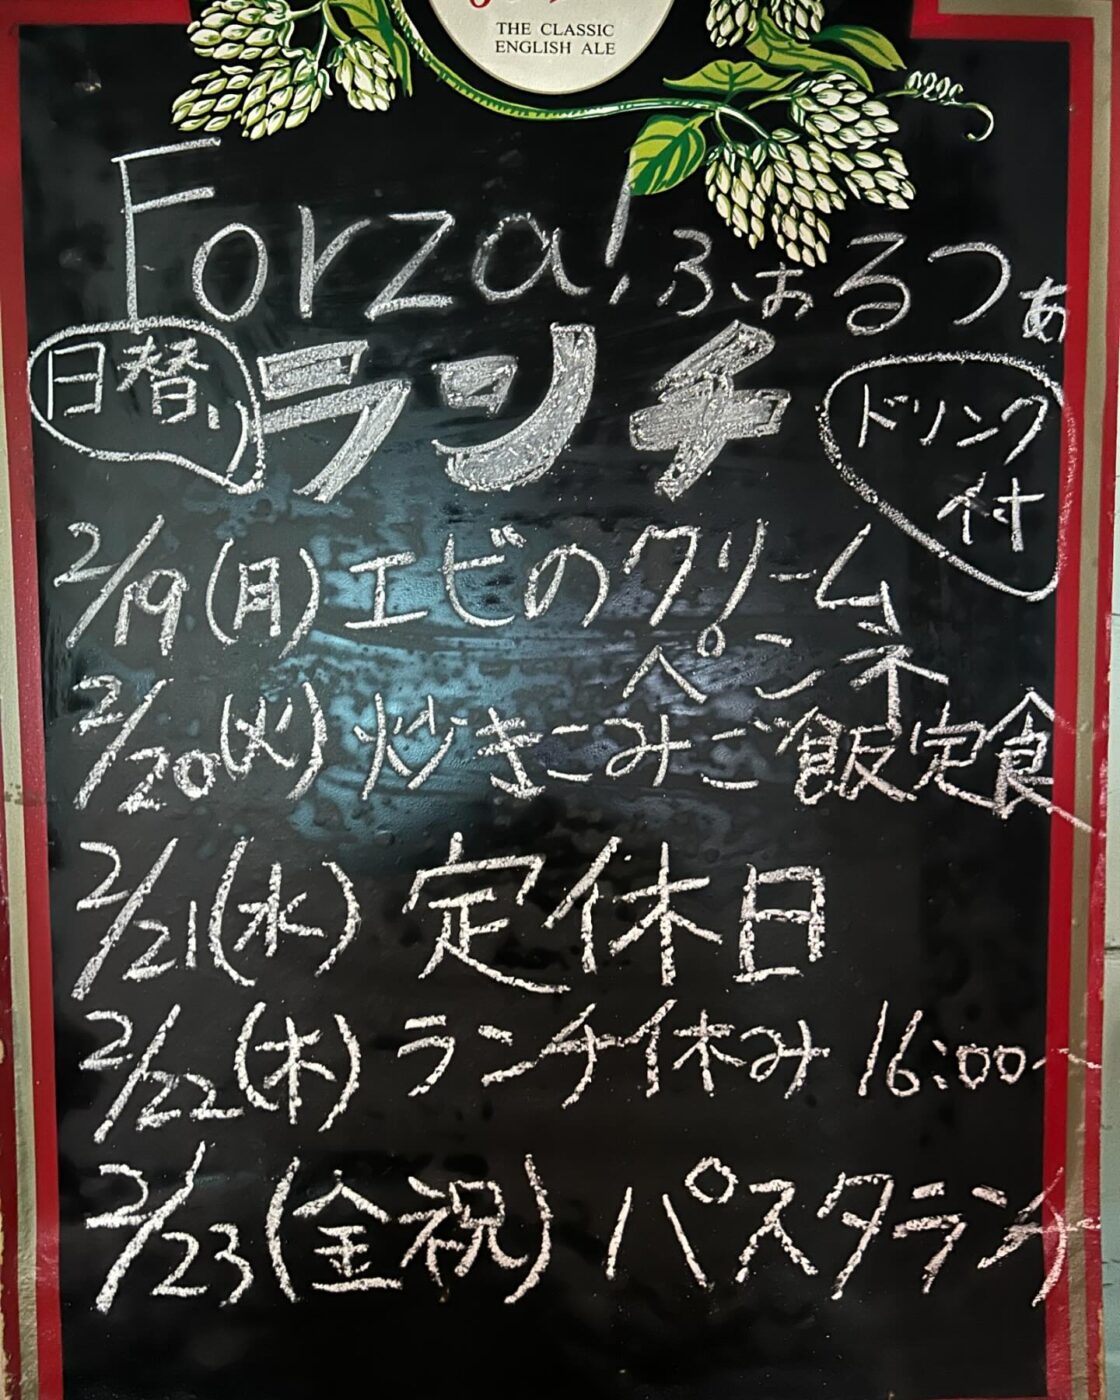 THE CLASSIC
ENGLISH ALE
Forza! ふぉるつぁ
日替り ランチ ドリンク
付
2/19(月) エビのクリーム
ペンネ
2/20(火) 炒きこみご飯定食
2/21(水) 定休日
2/22(木) ランチ休み 16:00~
2/23(金祝) パスタランチ